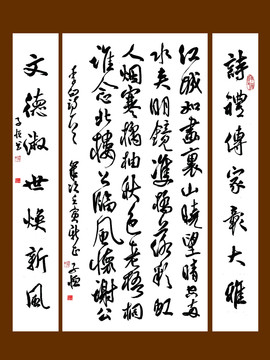 詩禮傳家彰大雅
江城如畫裏山曉望晴空兩
水夾明鏡雙橋落彩虹
人煙寒橘柚秋色老梧桐
誰念北樓上臨風懷謝公
李白詩 歲次壬寅新正
文德淑世煥新風